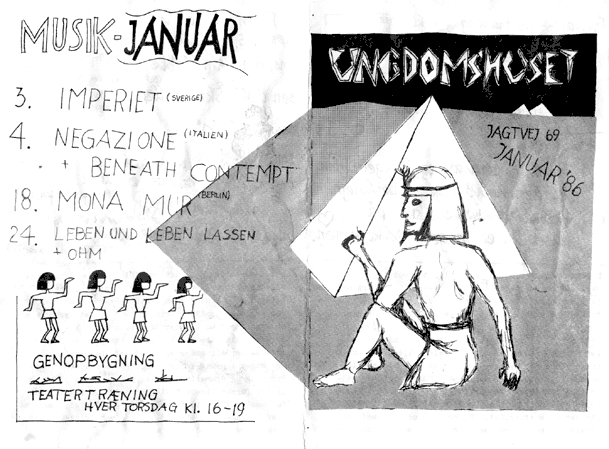 MUSIK-JANUAR
3. IMPERIET (SVERIGE)
4. NEGAZIONE (ITALIEN)
+ BENEATH CONTEMPT
18. MONA MUR (BERLIN)
24. LEBEN UND LEBEN LASSEN
+ OHM
GENOPBYGNING
TEATERTRÆNING
HVER TORSDAG KL. 16-19
UNGDOMSHUSET
JAGTVEJ 69
JANUAR '86